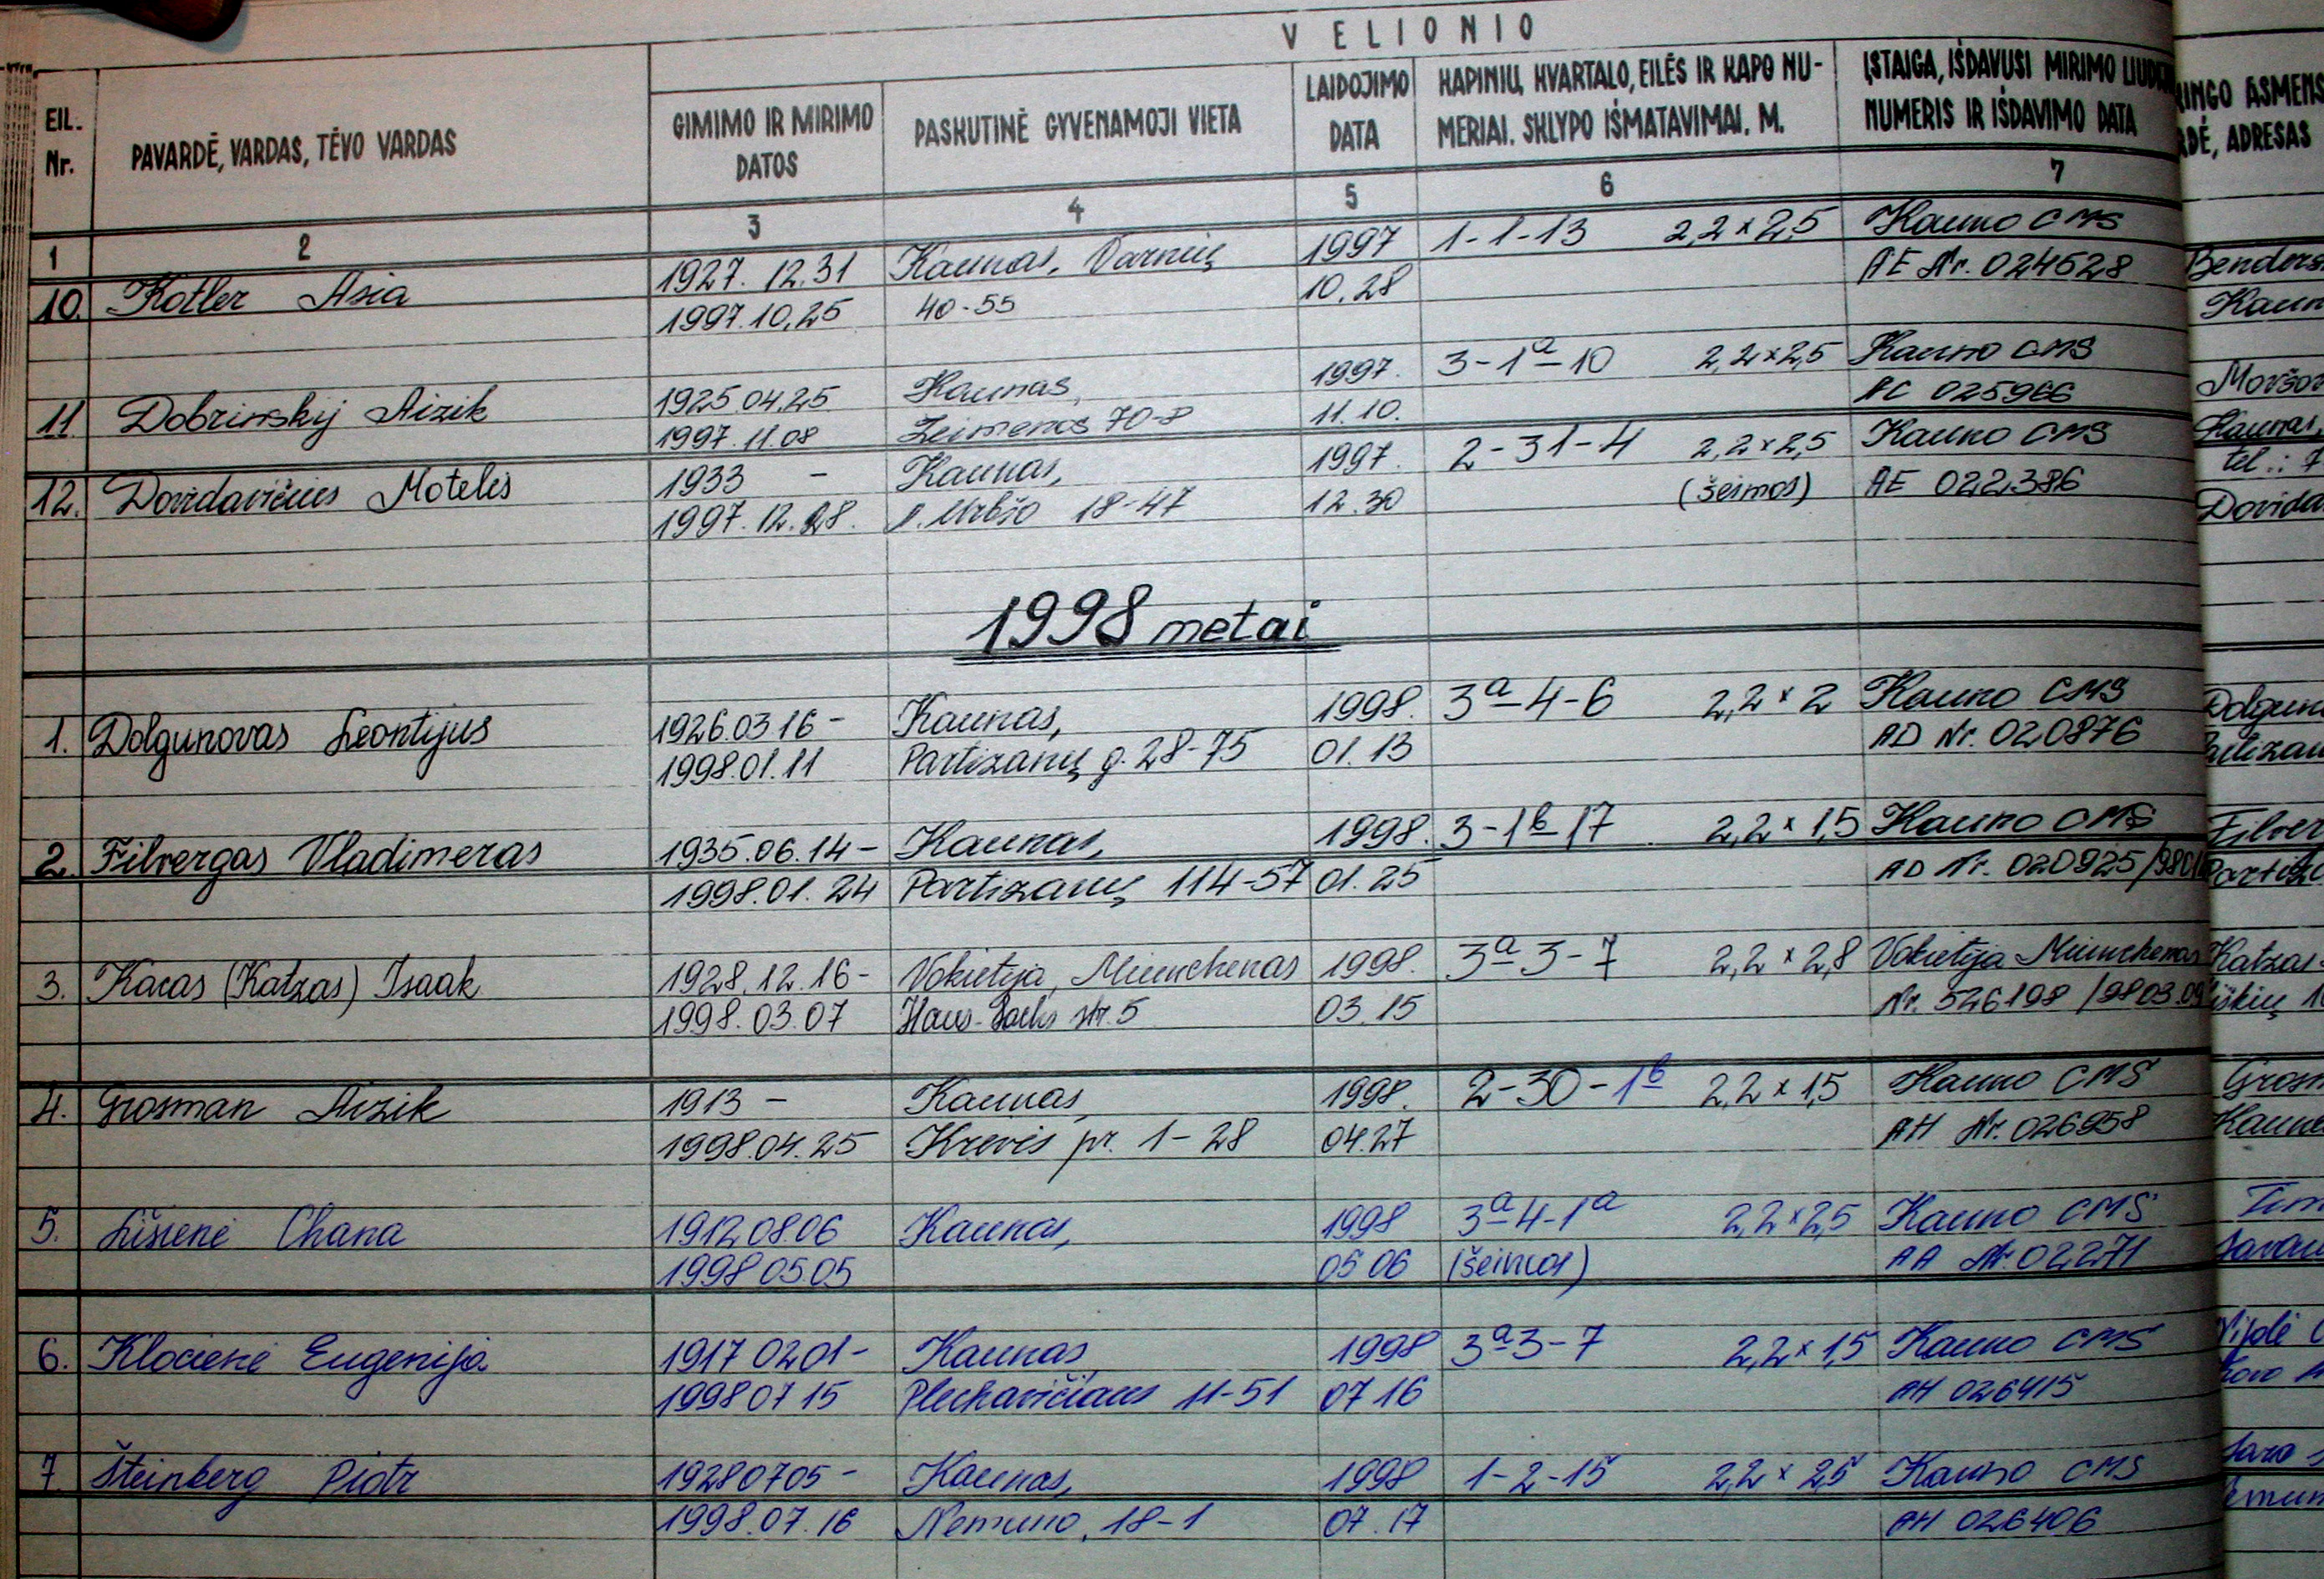 VELIONIO
EIL. Nr.
PAVARDĖ, VARDAS, TĖVO VARDAS
GIMIMO IR MIRIMO DATOS
PASKUTINĖ GYVENAMOJI VIETA
LAIDOJIMO DATA
KAPINIŲ, KVARTALO, EILĖS IR KAPO NU-
MERIAI. SKLYPO IŠMATAVIMAI, M.
ĮSTAIGA, IŠDAVUSI MIRIMO
NUMERIS IR IŠDAVIMO DATA
ASMENS
ADRESAS
1 2 3 4 5 6 7
10. Kotler Asia 1927.12.31 Kaunas, Varnių 1997 1-1-13 2,2 x 2,5 Kauno CMS
1997.10.25 40-55 10.28 AE Nr. 024528
11. Dobrinskij Aizik 1925.04.25 Kaunas, 1997. 3-1a-10 2,2 x 2,5 Kauno CMS
1997.11.08 Žeimenos 70-8 11.10. AC 025966
12. Dovidavičius Motelis 1933 - Kaunas, 1997. 2-31-4 2,2 x 2,5 Kauno CMS
1997.12.28. 18-47 12.30 (šeimos) AE 022386
1998 metai
1. Dolgunovas Leontijus 1926.03.16 - Kaunas, 1998. 3a-4-6 2,2 x 2 Kauno CMS
1998.01.11 Partizanų g. 28-75 01.13 AD Nr. 020876
2. Filvergas Vladimeras 1935.06.14 - Kaunas, 1998. 3-1b-17 2,2 x 1,5 Kauno CMS
1998.01.24 Partizanų 114-57 01.25 AD Nr. 020925
3. Kacas (Katzas) Isaak 1928.12.16 - Vokietija, Miunchenas 1998. 3a 3-7 2,2 x 2,8 Vokietija Miunchenas Katzas
1998.03.07 Hans-Sachs str. 5 03.15 Nr. 526198 /9803.09
4. Grosman Aizik 1913 - Kaunas, 1998. 2-30-1b 2,2 x 1,5 Kauno CMS
1998.04.25 Krėvės pr. 1-28 04.27 AH Nr. 026958
5. Lišienė Chana 1912.08.06 Kaunas, 1998 3a-4-1a 2,2 x 2,5 Kauno CMS
1998 05.05 05 06 (šeimos) AA Nr. 02271
6. Klocienė Eugenija 1917 02 01 - Kaunas, 1998 3a 3-7 2,2 x 1,5 Kauno CMS
1998 07 15 Plechavičiaus 11-51 07 16 AH 026415
7 Šteinberg Piotr 1928 07 05 - Kaunas, 1998 1-2-15 2,2 x 2,5 Kauno CMS
1998.07.16 Nemuno, 18-1 07.17 AH 026406